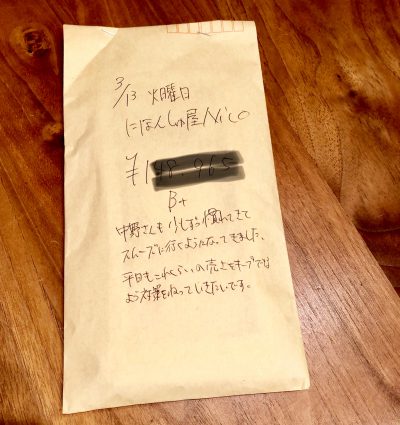 3/13 火曜日
にほんしゅ屋 Nico
¥1
B+
中野さんも少しずつ慣れてきて
スムーズに行くようになってきました。
平日もこれくらいの売上をキープできる
よう対策をねっていきたいです。